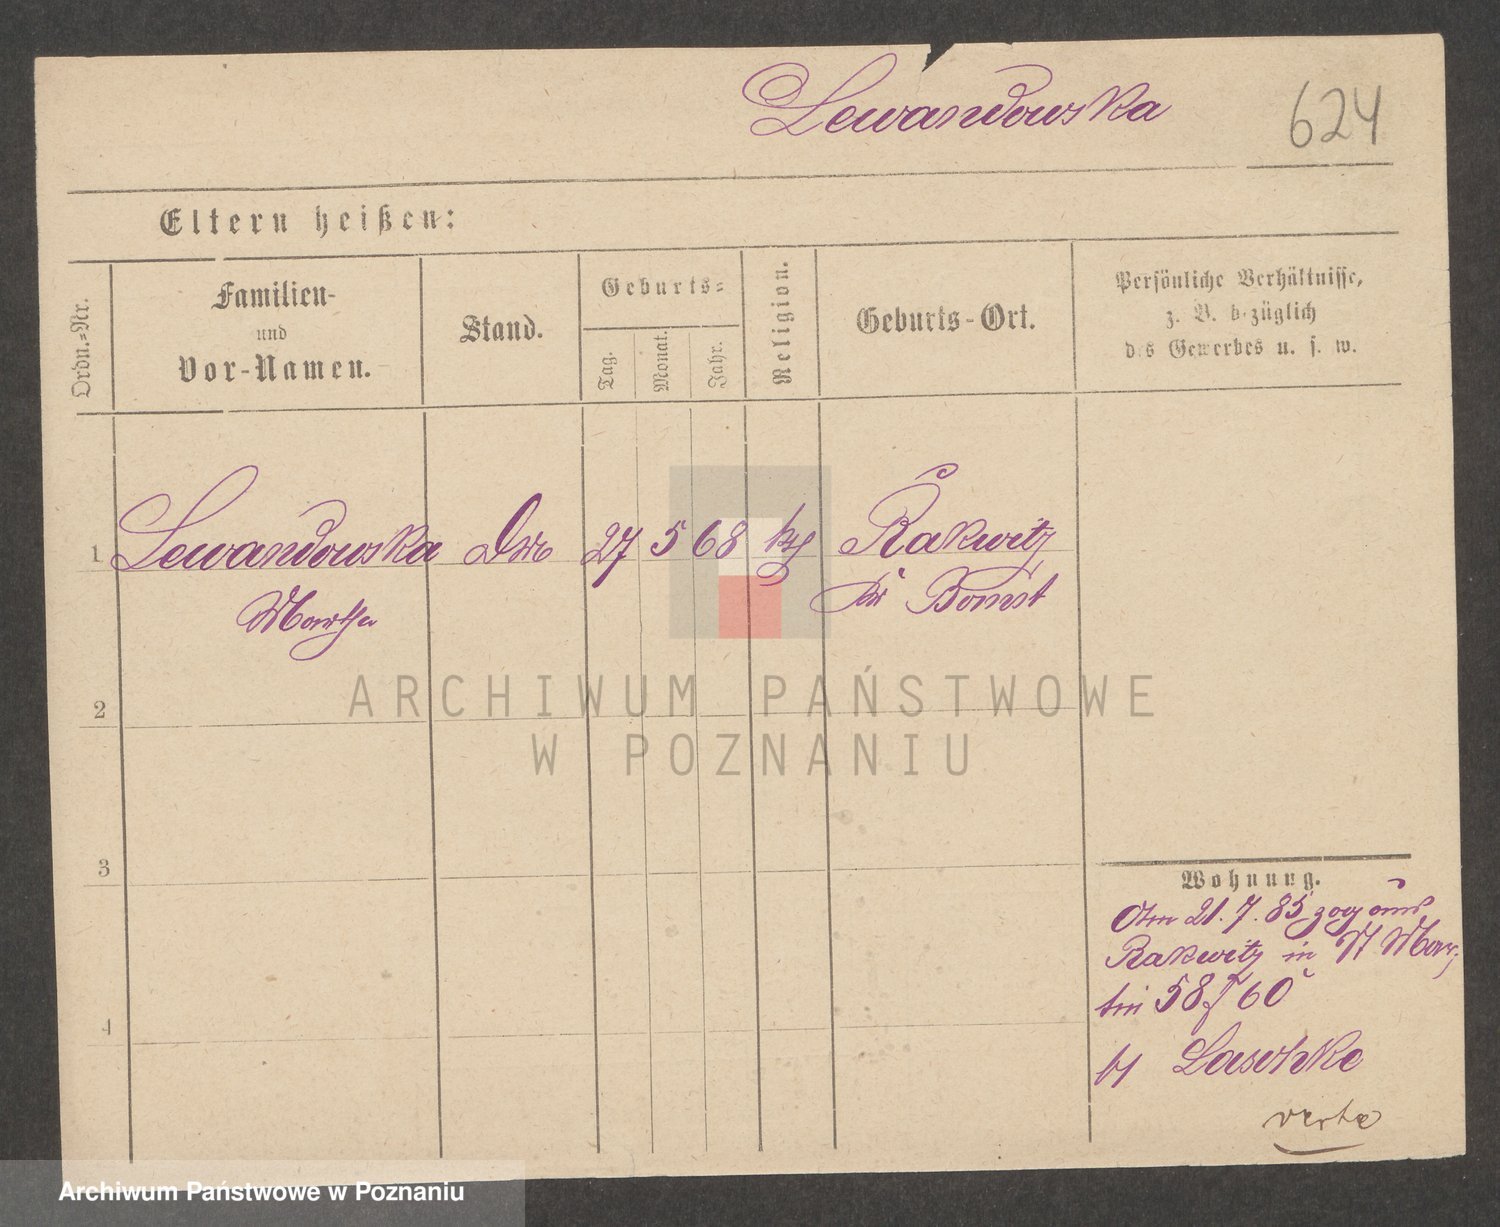 Lewandowska
624
Eltern heißen:
Ordn.-Nr.
Familien-
und
Vor-Namen.
Stand.
Geburts-
Tag.
Monat.
Jahr.
Religion.
Geburts-Ort.
Persönliche Verhältnisse,
z. B. bezüglich
des Gewerbes u. s. w.
1 Lewandowska 27 5 68 Rakwitz
Martha Kr Bomst
2
3
4
Wohnung.
Am 21.7.85 zog aus
Rakwitz in St Mar-
tin 58/60
bei Laschke
verte
ARCHIWUM PAŃSTWOWE
W POZNANIU
Archiwum Państwowe w Poznaniu